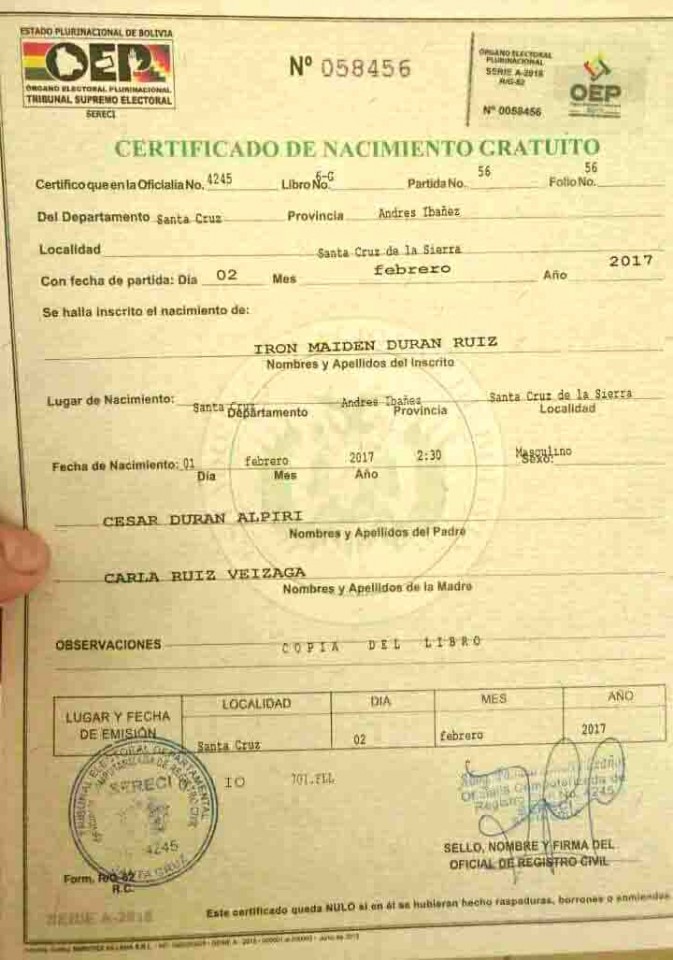 ESTADO PLURINACIONAL DE BOLIVIA
OEP
ÓRGANO ELECTORAL PLURINACIONAL
TRIBUNAL SUPREMO ELECTORAL
SERECI
Nº 058456
ÓRGANO ELECTORAL
PLURINACIONAL
SERIE A-2016
R/G-62
Nº 0058456
OEP
CERTIFICADO DE NACIMIENTO GRATUITO
Certifico que en la Oficialia No. 4245 Libro No. 6-G Partida No. 56 Folio No. 56
Del Departamento Santa Cruz Provincia Andres Ibañez
Localidad Santa Cruz de la Sierra
Con fecha de partida: Día 02 Mes febrero Año 2017
Se halla inscrito el nacimiento de:
IRON MAIDEN DURAN RUIZ
Nombres y Apellidos del Inscrito
Lugar de Nacimiento: Santa Cruz Andres Ibañez Santa Cruz de la Sierra
Departamento Provincia Localidad
Fecha de Nacimiento: 01 febrero 2017 2:30 Masculino
Día Mes Año Sexo:
CESAR DURAN ALPIRI
Nombres y Apellidos del Padre
CARLA RUIZ VEIZAGA
Nombres y Apellidos de la Madre
OBSERVACIONES COPIA DEL LIBRO
LUGAR Y FECHA DE EMISIÓN
LOCALIDAD DIA MES AÑO
Santa Cruz 02 febrero 2017
TRIBUNAL ELECTORAL DEPARTAMENTAL
SERECI
4245
SANTA CRUZ
IO
Oficialia Computarizada de
Registro Civil No. 4245
SERECI
SELLO, NOMBRE Y FIRMA DEL
OFICIAL DE REGISTRO CIVIL
Form. R/G-62
R.C.
SERIE A-2016
Este certificado queda NULO si en él se hubieran hecho raspaduras, borrones o enmiendas